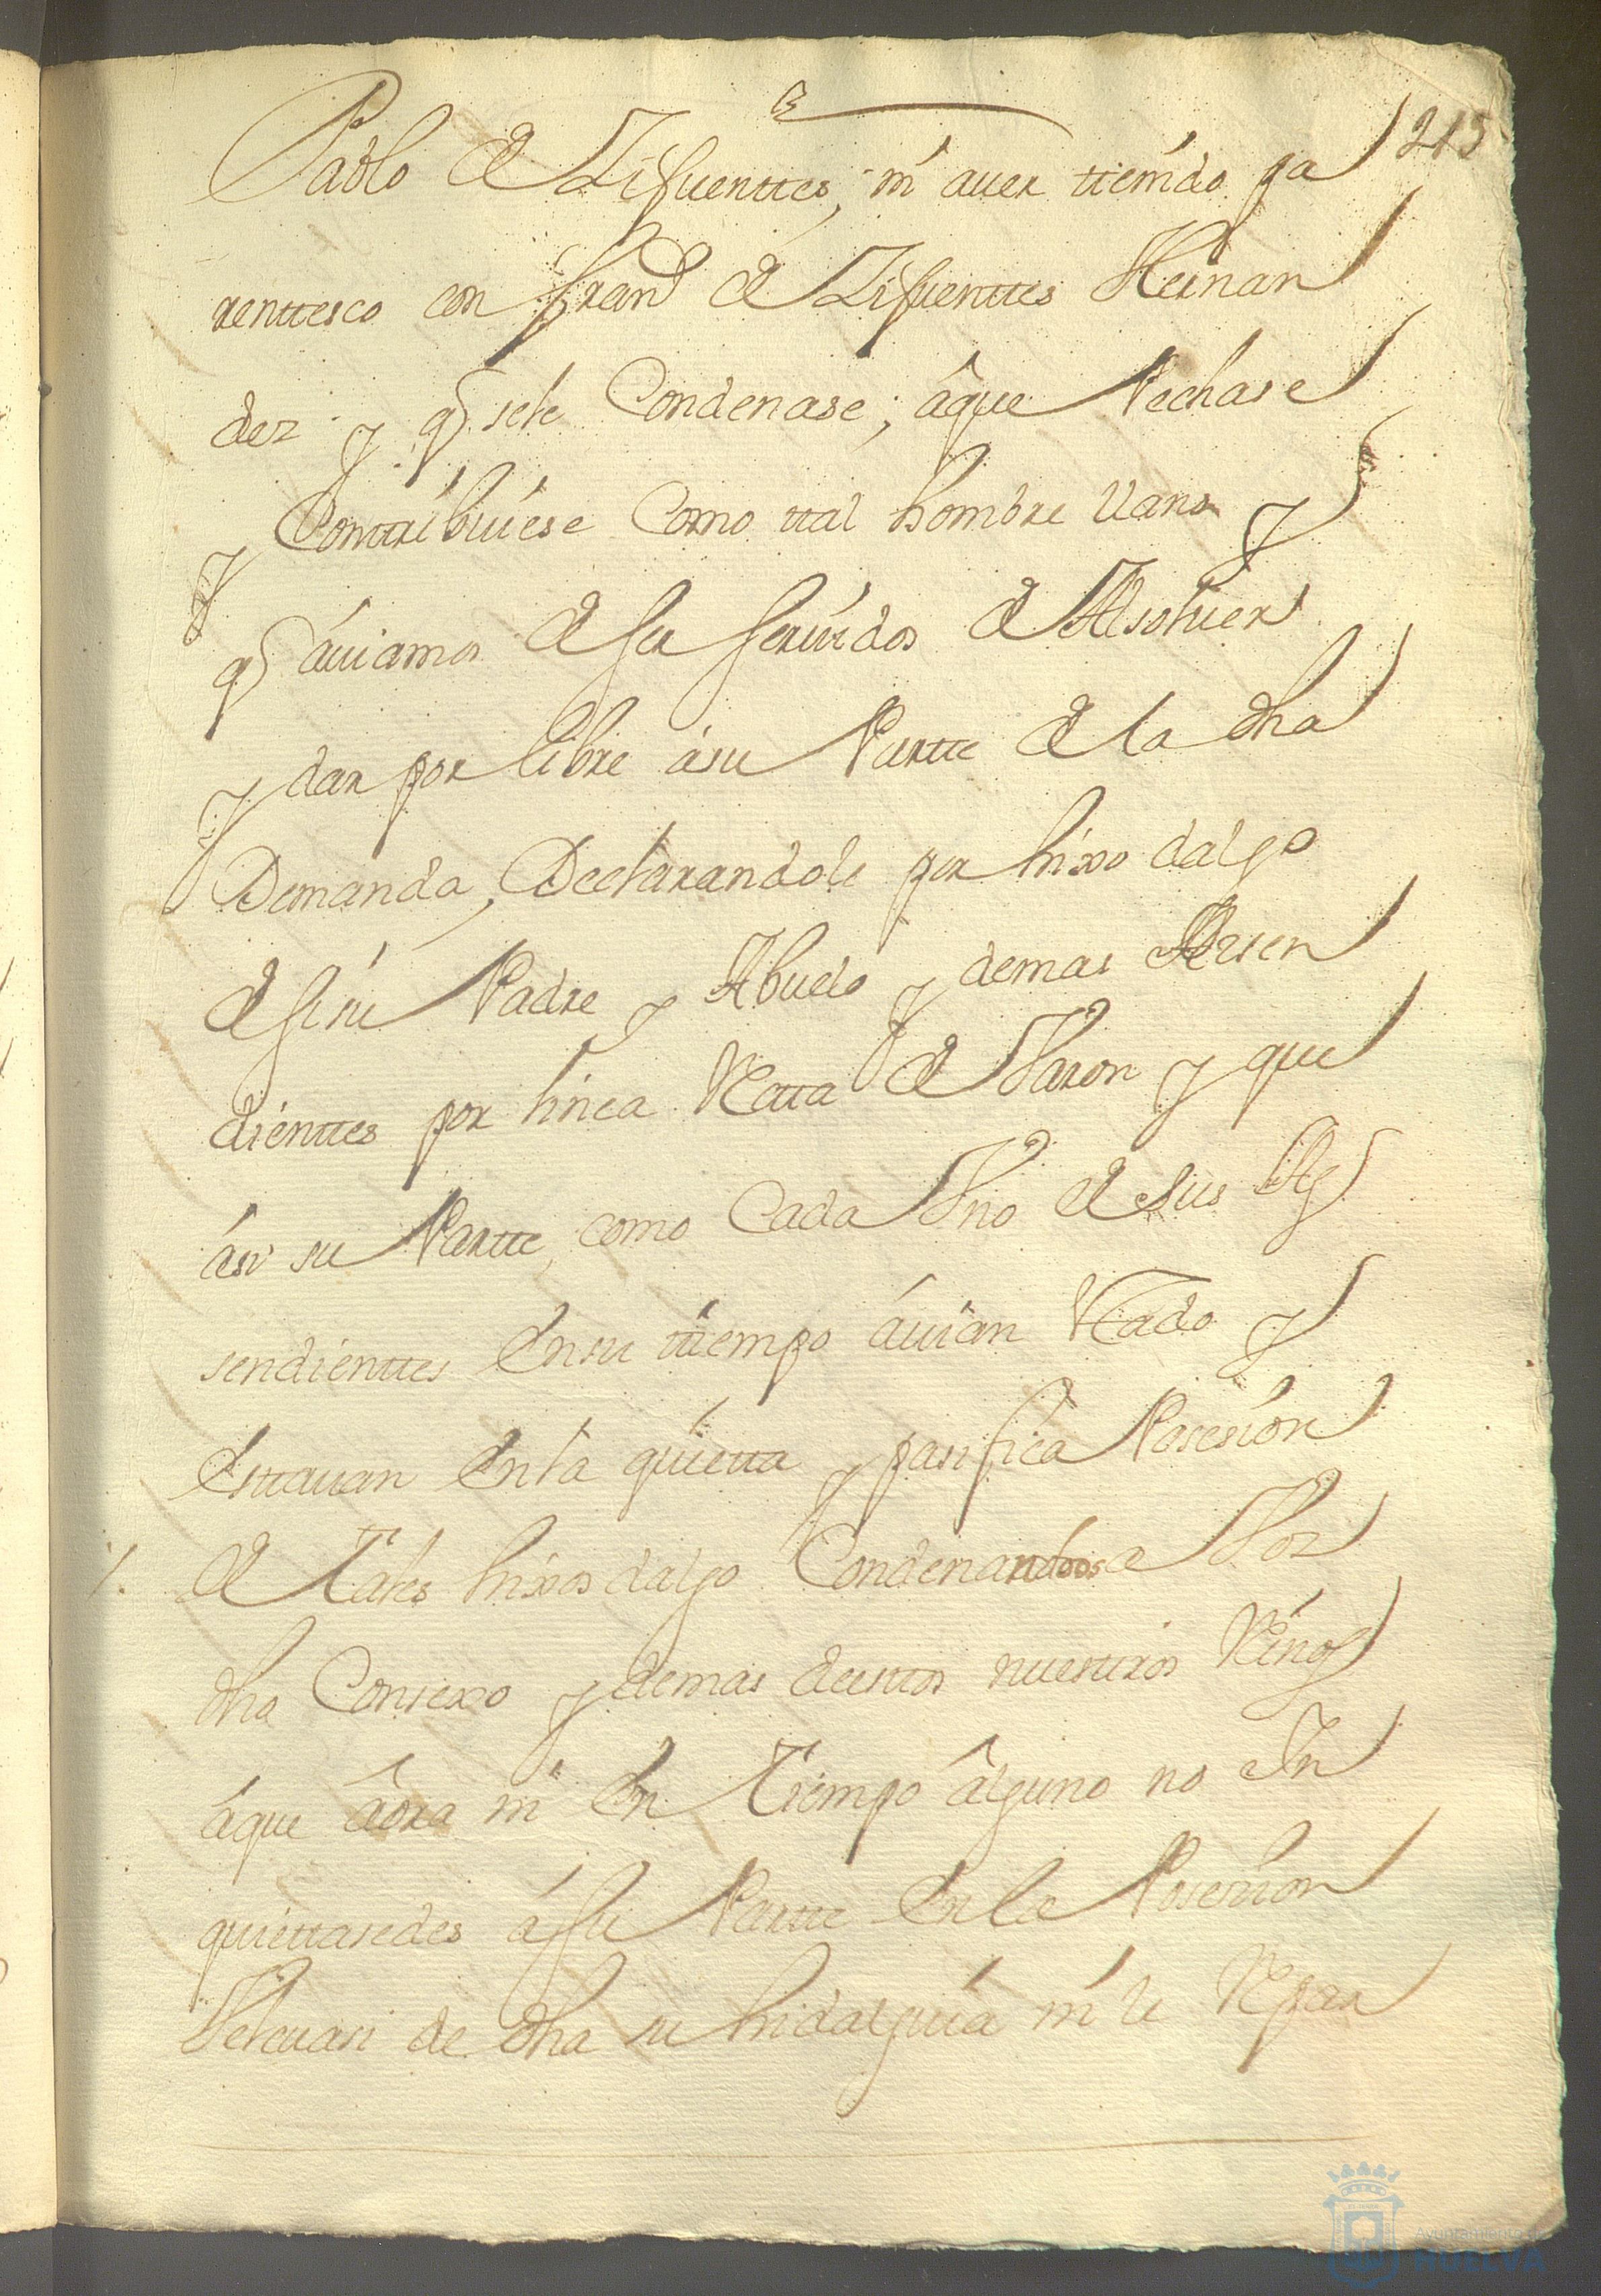 215
Pablo de Zifuenttes, ni auer ttenido pa
renttesco con Fran.co de Zifuenttes Hernan
dez y q̃ sele Condenase; âque Pechase
y Conttribuiése Como ttal hombre llano y
q̃ áuiamos de ser seruidos de Absoluer
y dar por libre ásu Partte de la dha
Demanda, Declarandole por hixo dalgo
de si su Padre y Abuelo y demas Assen
dienttes por linea Rectta de Varon y que
ási su Partte, como Cada Vno de sus As
sendienttes En su ttiempo áuian Estado y
Esttauan En la quietta y pasifica Posesion
de Tales hixos dalgo Condenandoos a Vos
dho Consexo y demas de esttos nuesttros Reinos
áque âora ni En Tiempo âlguno no In
quiettasedes á su Partte En la Posesion
Velcuasi de dha su hidalguia ni le Repar
Ayuntamiento de
HUELVA